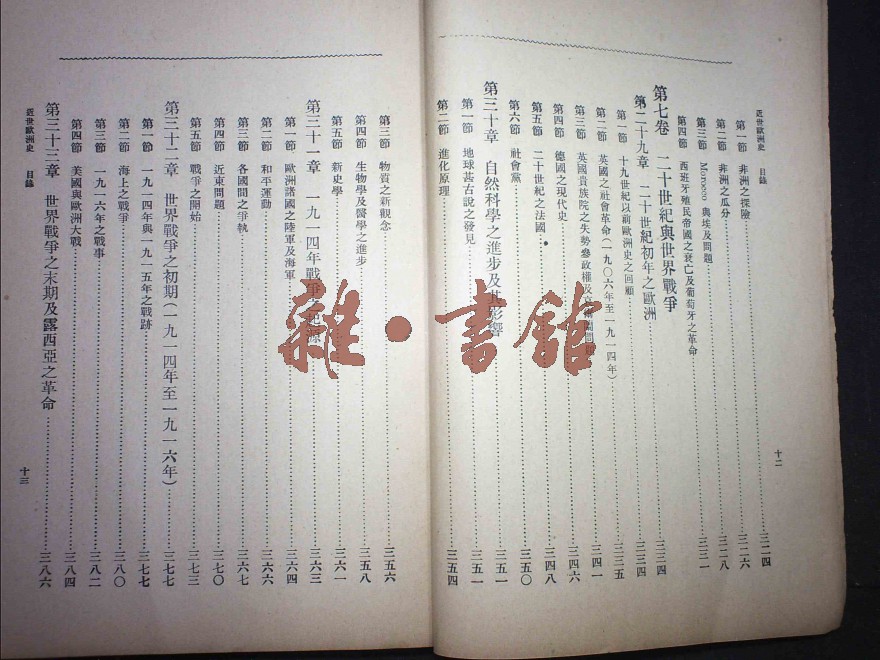 近世歐洲史 目錄
第一節 非洲之探險……三二四
第二節 非洲之瓜分……三二六
第三節 Morocco 與埃及問題……三二八
第四節 西班牙殖民帝國之衰亡及葡萄牙之革命……三三一
第七卷 二十世紀與世界戰爭
第二十九章 二十世紀初年之歐洲……三三四
第一節 十九世紀以前歐洲史之回顧……三三四
第二節 英國之社會革命(一九〇六年至一九一四年)……三三五
第三節 英國貴族院之失勢參政權及……三四一
第四節 德國之現代史……三四六
第五節 二十世紀之法國……三四八
第六節 社會黨……三五〇
第三十章 自然科學之進步及其影響……三五一
第一節 地球甚古說之發見……三五一
第二節 進化原理……三五四
十二
第三節 物質之新觀念……三五六
第四節 生物學及醫學之進步……三五八
第五節 新史學……三六一
第三十一章 一九一四年戰爭之起源……三六三
第一節 歐洲諸國之陸軍及海軍……三六四
第二節 和平運動……三六六
第三節 各國間之爭執……三六七
第四節 近東問題……三七〇
第五節 戰爭之開始……三七三
第三十二章 世界戰爭之初期(一九一四年至一九一六年)……三七七
第一節 一九一四年與一九一五年之戰跡……三七七
第二節 海上之戰爭……三八〇
第三節 一九一六年之戰事……三八二
第四節 美國與歐洲大戰……三八四
第三十三章 世界戰爭之末期及露西亞之革命……三八六
近世歐洲史 目錄
十三
雜·書館